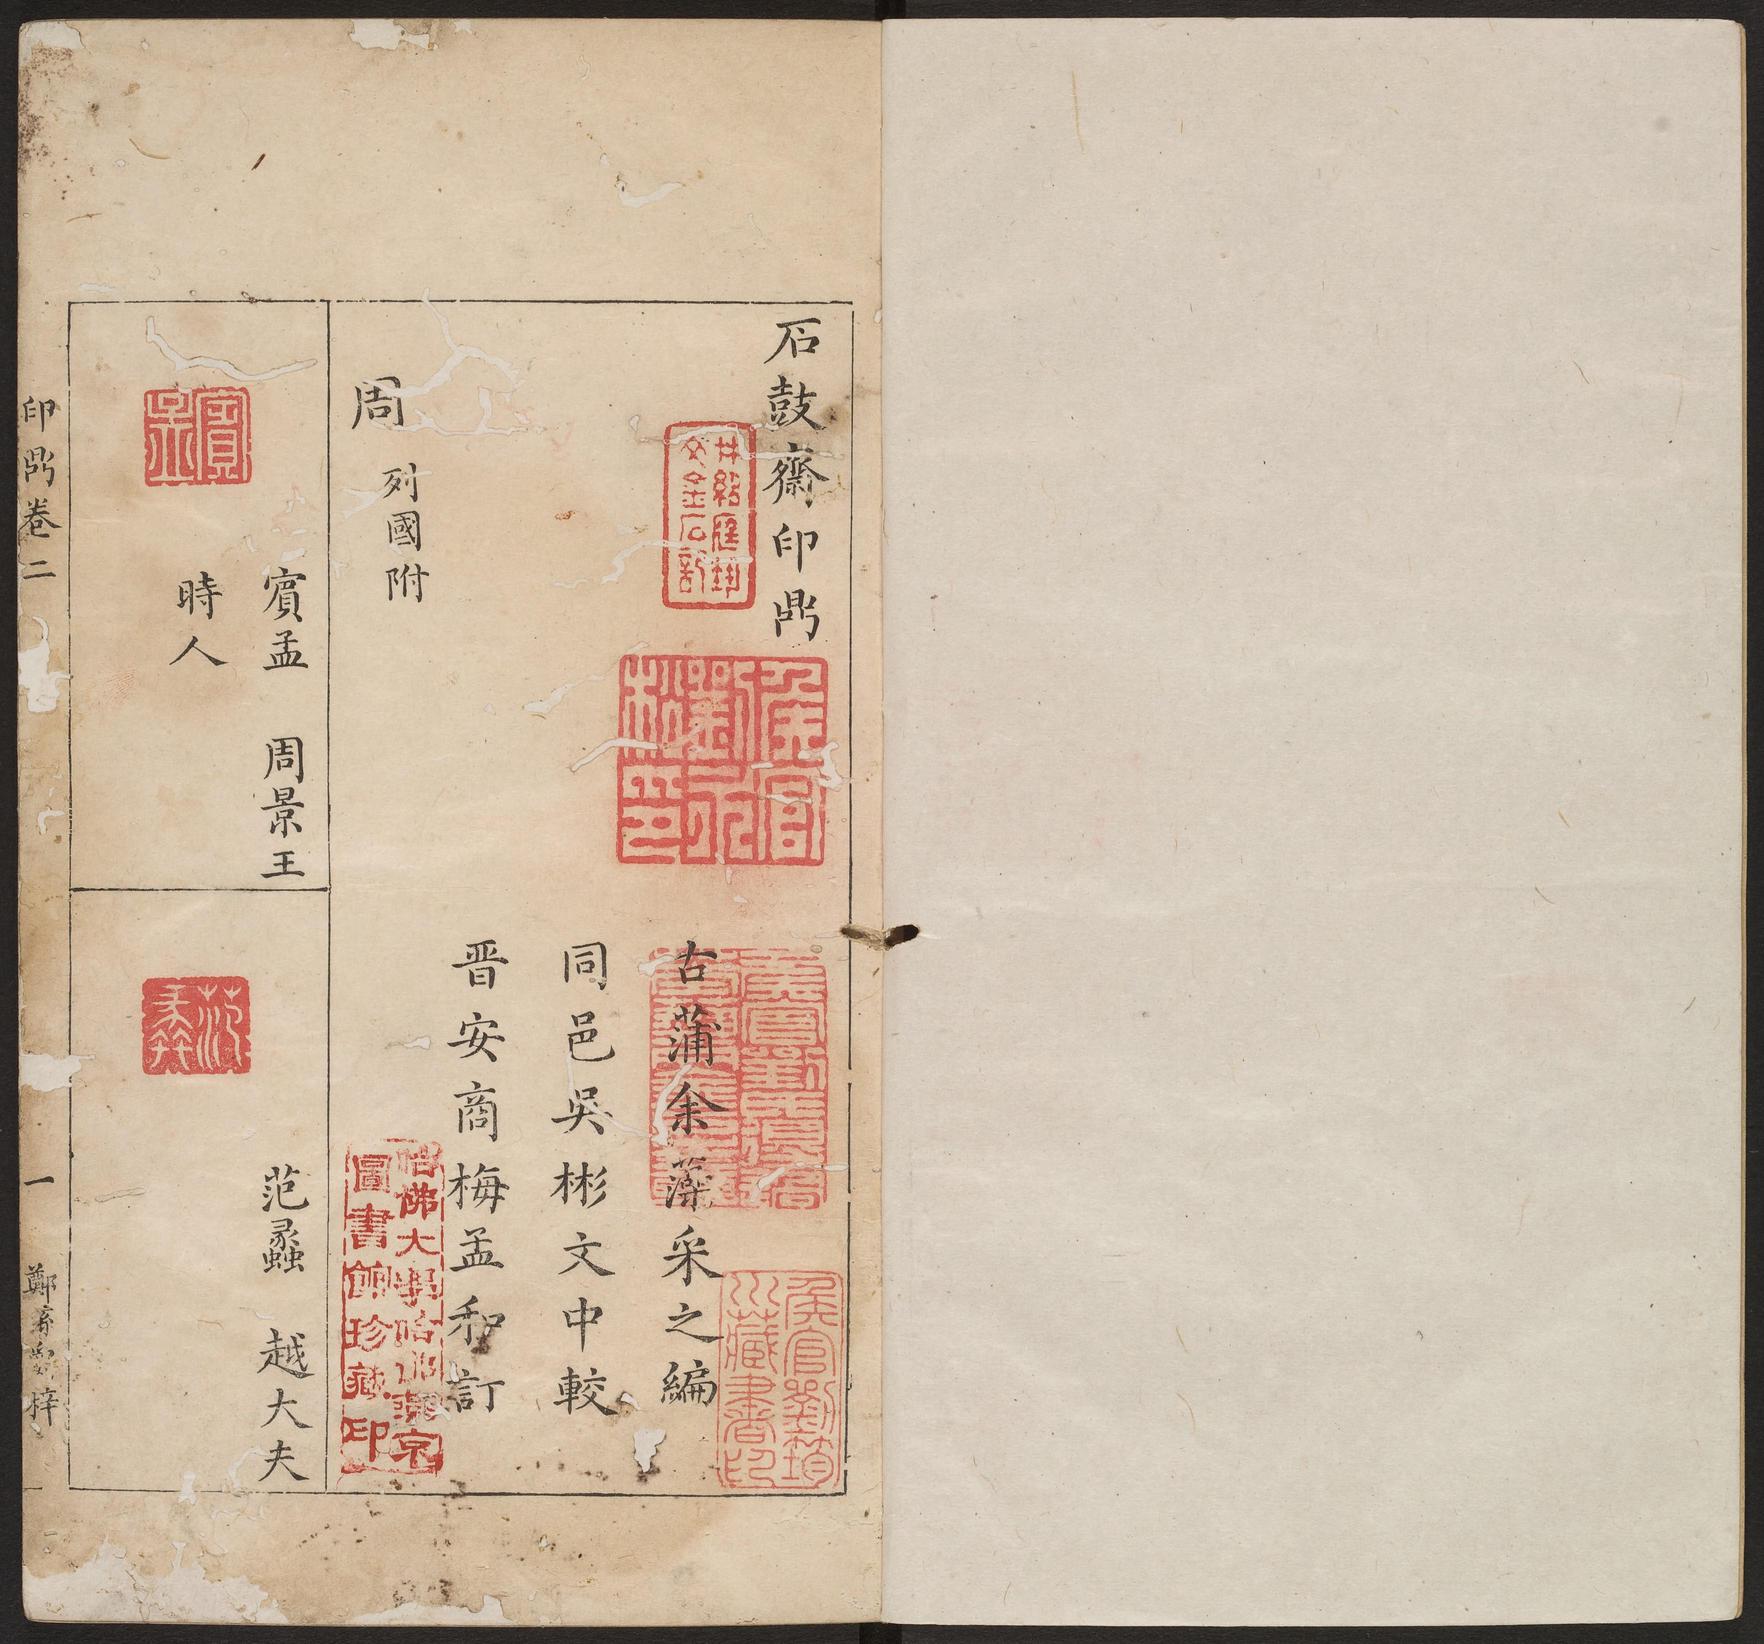 石鼓齋印鼎
古蒲余藻采之編
同邑吳彬文中較
晋安商梅孟和訂
周 列國附
賓孟 周景王
時人
范蠡 越大夫
印鼎卷二
一
鄭
梓
侯官劉筠
川藏書印
哈佛大學哈佛燕京
圖書館珍藏印